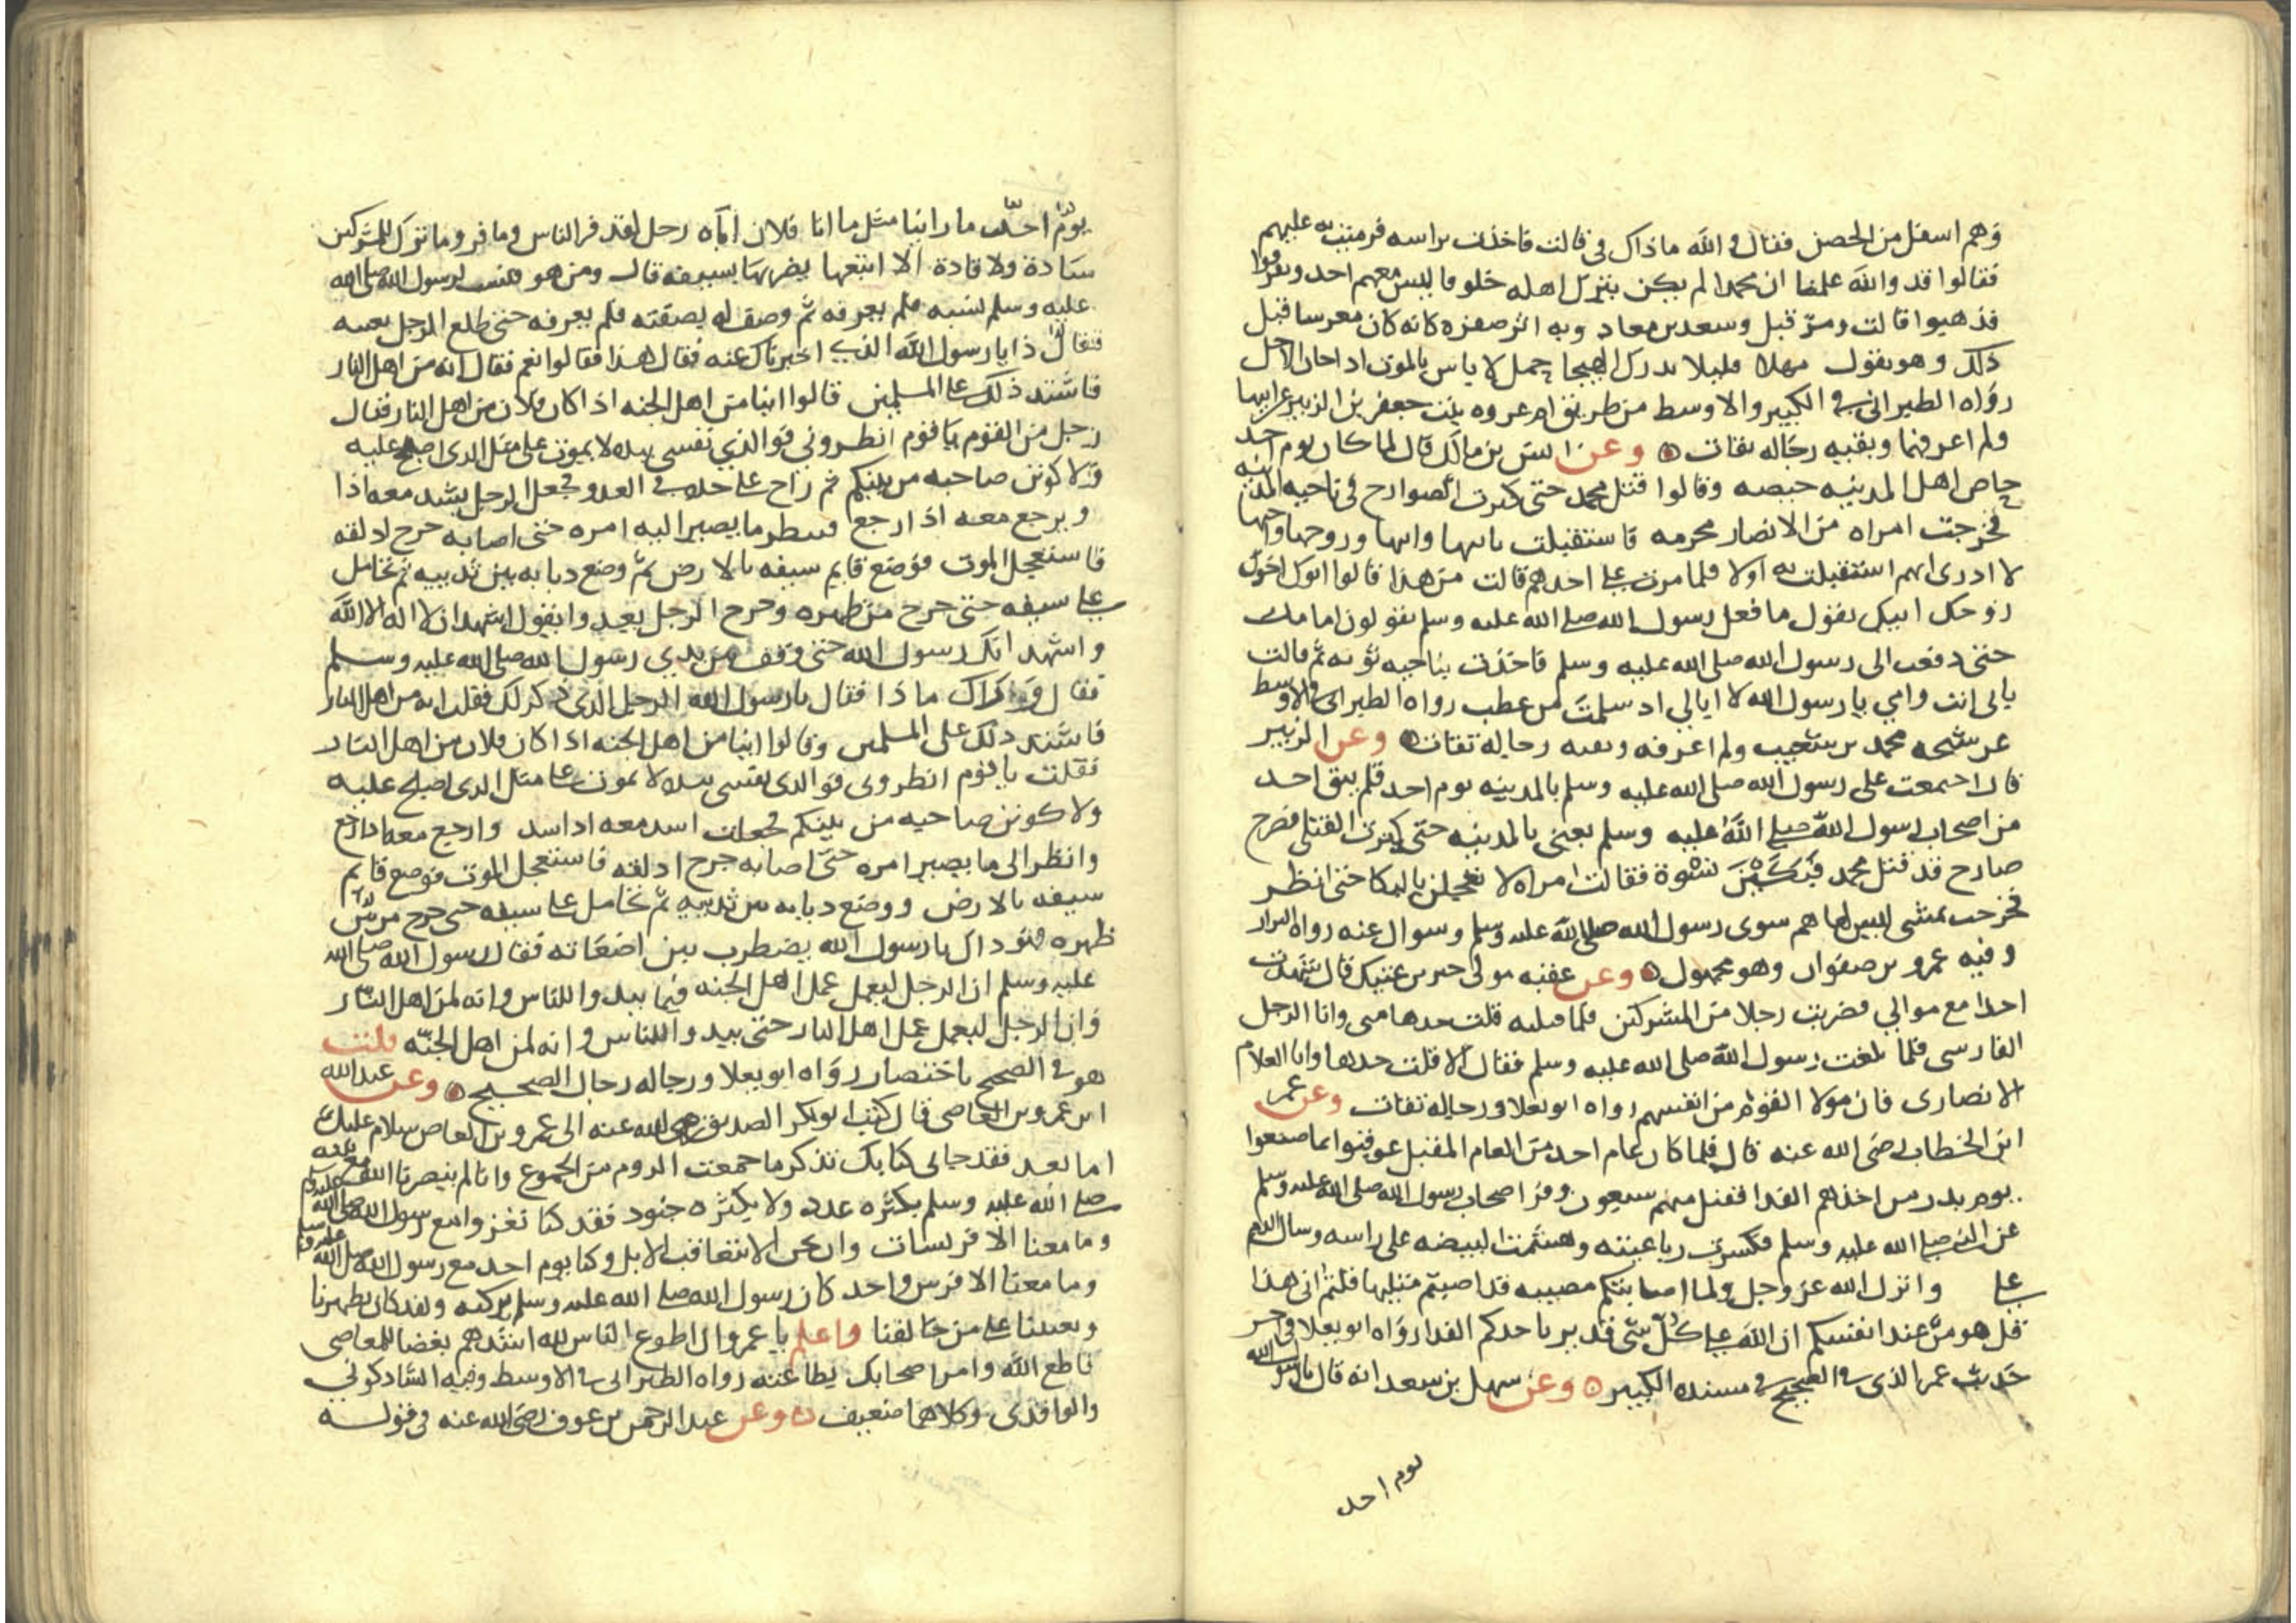 وهم اسفل من الحصن فقال والله ماذاك في قالت فاخذت براسه فرميت به عليهم
فقالوا قد والله علمنا ان محمدا لم يكن يترك اهله خلوفا ليس معهم احد وتفرقوا
فذهبوا قالت ومر قبل وسعد بن معاد وبه اثر صفرة كانه كان معرسا قبل
ذلك وهو يقول مهلا قليلا يدرك الهيجا جمل لا ياس بالموت اذا حان الاجل
رواه الطبراني في الكبير والاوسط من طريق ام عروه بنت جعفر بن الزبير عن ابيها
ولم اعرفهما وبقيه رجاله ثقات وعن انس بن مالك قال لما كان يوم احد
حاص اهل المدينه حيصه وقالوا قتل محمد حتى كثرت الصوارح في ناحيه المدينه
فخرجت امراه من الانصار محرمه فاستقبلت بابيها وابنها وزوجها واخيها
لا ادرى ايهم استقبلت به اولا فلما مرت على احدهم قالت من هذا قالوا ابوك اخوك
زوجك ابنك تقول ما فعل رسول الله صلى الله عليه وسلم يقولون امامك
حتى دفعت الى رسول الله صلى الله عليه وسلم فاخذت بناحيه ثوبه ثم قالت
بابي انت وامي يا رسول الله لا ابالي اد سلمت من عطب رواه الطبراني في الاوسط
عن شيخه محمد بن شعيب ولم اعرفه وبقيه رجاله ثقات وعن الزبير
قال اجتمعت على رسول الله صلى الله عليه وسلم بالمدينه يوم احد فلم يبق احد
من اصحاب رسول الله صلى الله عليه وسلم يعنى بالمدينه حتى كثرت القتلى فصرخ
صارخ قد قتل محمد فبكين نسوة فقالت امراه لا تعجلن بالبكا حتى انظر
فخرجت تمشى ليس لها هم سوى رسول الله صلى الله عليه وسلم وسوال عنه رواه البزار
وفيه عمرو بن صفوان وهو مجهول وعن عقبه مولى جبر بن عتيك قال شهدت
احدا مع موالي فضربت رجلا من المشركين فلما قتلته قلت خدها منى وانا الرجل
الفارسى فلما بلغت رسول الله صلى الله عليه وسلم فقال الا قلت خدها وانا الغلام
الانصارى فان مولا القوم من انفسهم رواه ابو يعلا ورجاله ثقات وعن عمر
ابن الخطاب رضى الله عنه قال فلما كان عام احد من العام المقبل عوقبوا بما صنعوا
يوم بدر من اخذهم الفدا فقتل منهم سبعون وفر اصحاب رسول الله صلى الله عليه وسلم
عن النبى صلى الله عليه وسلم فكسرت رباعيته وهشمت البيضه على راسه وسال الدم
على وانزل الله عز وجل ولما اصابتكم مصيبه قد اصبتم مثليها قلتم انى هذا
قل هو من عند انفسكم ان الله على كل شى قدير باخدكم الفدا رواه ابو يعلا
حديث عمر الذى فى الصحيح فى مسنده الكبير وعن سهل بن سعد انه قال يا رسول الله
يوم احد
يوم احد ما راينا مثل ما اتا فلان اتاه رجل لقد فر الناس وما فر وما ترك للمشركين
شادة ولا قادة الا اتبعها يضربها بسيفه قال ومن هو فنسب لرسول الله صلى الله
عليه وسلم نسبه فلم يعرفه ثم وصف له بصفته فلم يعرفه حتى طلع الرجل بعينه
فقال ذا يا رسول الله الذي اخبرناك عنه فقال هذا فقالوا نعم فقال انه من اهل النار
فاشتد ذلك على المسلمين قالوا اينا من اهل الجنه اذا كان فلان من اهل النار فقال
رجل من القوم يا قوم انظروني فوالذي نفسى بيده لا يموت على مثل الدى اصبح عليه
ولا كونن صاحبه من بينكم ثم راح على حده فى العدو فجعل الرجل يشد معه اذا
ويرجع معه اذا رجع فينظر ما يصير اليه امره حتى اصابه جرح ادلقه
فاستعجل الموت فوضع قايم سيفه بالارض ثم وضع دبابه بين ثدييه ثم تحامل
على سيفه حتى خرج من ظهره وخرج الرجل يعدوا يقول اشهد ان لا اله الا الله
واشهد انك رسول الله حتى وقف بين يدي رسول الله صلى الله عليه وسلم
فقال وذاك ماذا فقال يا رسول الله الرجل الذى ذكر لك فقلت انه من اهل النار
فاشتد ذلك على المسلمين وقالوا اينا من اهل الجنه اذا كان فلان من اهل النار
فقلت يا قوم انظروني فوالدى نفسى بيده لا يموت على مثل الدى اصبح عليه
ولا كونن صاحبه من بينكم فجعلت اشد معه اذا شد وارجع معه اذا رجع
وانظر الى ما يصير امره حتى اصابه جرح ادلقه فاستعجل الموت فوضع قايم
سيفه بالارض ووضع دبابه بين ثدييه ثم تحامل على سيفه حتى خرج من بين
ظهره فهو داك يا رسول الله يضطرب بين اضغاثه فقال رسول الله صلى الله
عليه وسلم ان الرجل ليعمل عمل اهل الجنه فيما يبدوا للناس وانه لمن اهل النار
وان الرجل ليعمل عمل اهل النار حتى يبدوا للناس وانه لمن اهل الجنه قلت
هو فى الصحيح باختصار رواه ابو يعلا ورجاله رجال الصحيح وعن عبد الله
ابن عمرو بن العاصى قال كتب ابو بكر الصديق رضى الله عنه الى عمرو بن العاص سلام عليك
اما بعد فقد جانى كتابك تذكر ما جمعت الروم من الجموع وانا لم ينصرنا الله مع نبيه
صلى الله عليه وسلم بكثره عدد ولا بكثره جنود فقد كنا نغزوا مع رسول الله صلى الله عليه وسلم
وما معنا الا فرسات وان نحن الا نتعاقب الابل وكنا يوم احد مع رسول الله صلى الله عليه وسلم
وما معنا الا فرس واحد كان رسول الله صلى الله عليه وسلم يركبه ولقد كان يظهرنا
ويعيننا على من خالفنا واعلم يا عمرو ان اطوع الناس لله اشدهم بغضا للمعاصى
فاطع الله وامر اصحابك بطاعته رواه الطبرانى فى الاوسط وفيه الشادكوني
والواقدى وكلاهما ضعيف وعن عبد الرحمن بن عوف رضى الله عنه فى قوله